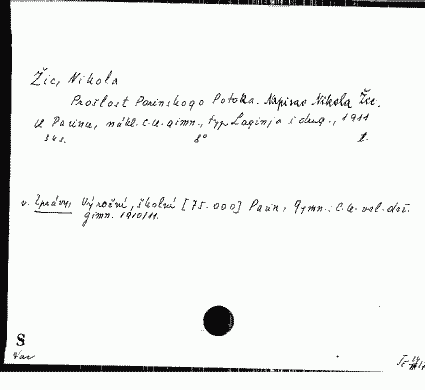 Žic, Nikola
Prošlost Pazinskoga Potoka. Napisao Nikola Žic.
U Pazinu, nákl. c.k. gimn., typ. Laginja i drug., 1911
34 s. 8° l.
v. Zprávy, Výroční, školní [75.000] Pazin, Gymn.: C.k. vel. drž.
gimn. 1910/11.
S